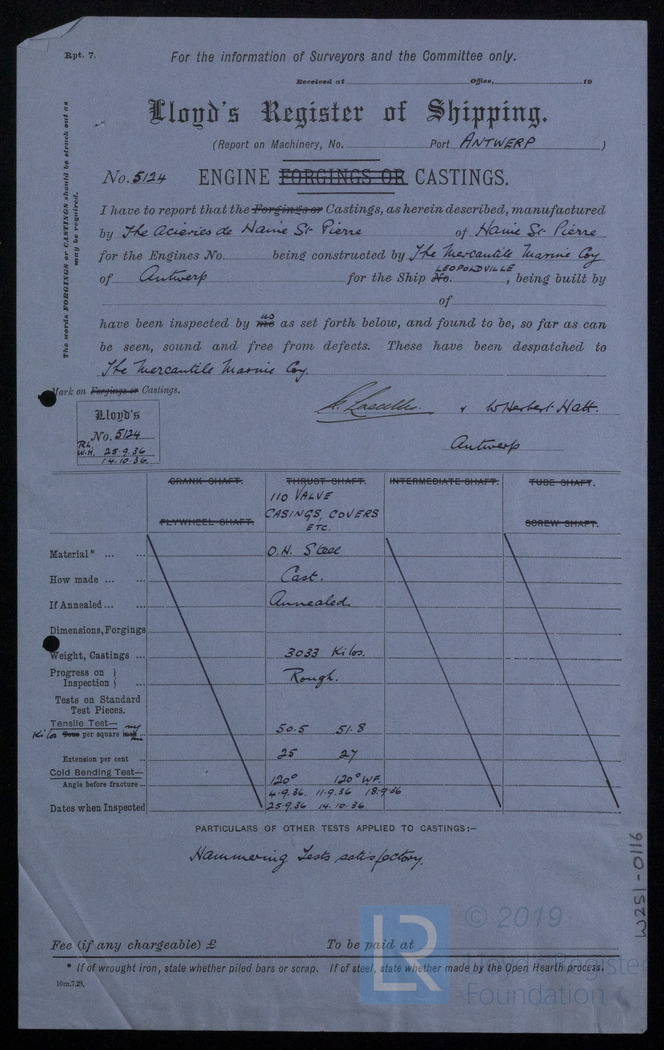 Rpt. 7.
For the information of Surveyors and the Committee only.
Received at Office, 19
Lloyd's Register of Shipping.
(Report on Machinery, No. Port ANTWERP )
No. 5124 ENGINE FORGINGS OR CASTINGS.
The words FORGINGS or CASTINGS should be struck out as may be required.
I have to report that the Forgings or Castings, as herein described, manufactured
by The Acieries de Haine St Pierre of Haine St Pierre
for the Engines No. being constructed by The Mercantile Marine Coy
of Antwerp for the Ship No. LEOPOLDVILLE, being built by
of
have been inspected by me us as set forth below, and found to be, so far as can
be seen, sound and free from defects. These have been despatched to
The Mercantile Marine Coy.
Mark on Forgings or Castings.
Lloyd's
No. 5124
RL
W.H. 25.9.36
14.10.36.
& W Herbert Hatt.
Antwerp
CRANK SHAFT. THRUST SHAFT. INTERMEDIATE SHAFT. TUBE SHAFT.
110 VALVE
CASINGS, COVERS
ETC.
FLYWHEEL SHAFT. SCREW SHAFT.
Material* ... ... O.H. Steel
How made ... ... Cast.
If Annealed ... ... Annealed.
Dimensions, Forgings
Weight, Castings ... 3033 Kilos.
Progress on Inspection } ... Rough.
Tests on Standard
Test Pieces.
Tensile Test—
Kilos Tons per square inch m/m ... 50.5 51.8
Extension per cent ... 25 27
Cold Bending Test—
Angle before fracture ... 120° 120° W.F.
4.9.36. 11.9.36 18.9.36
Dates when Inspected 25.9.36 14.10.36
PARTICULARS OF OTHER TESTS APPLIED TO CASTINGS:—
Hammering Tests satisfactory.
Fee (if any chargeable) £ To be paid at
* If of wrought iron, state whether piled bars or scrap. If of steel, state whether made by the Open Hearth process.
10m.7.28.
W251-0116
LR
© 2019
Lloyd's Register
Foundation